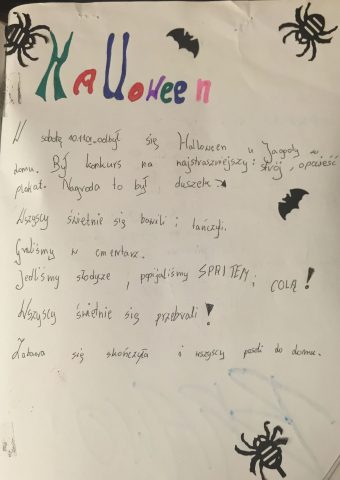 Halloween
W sobotę 10.11.01. odbył się Halloween u Jagody w
domu. Był konkurs na najstraszniejszy: strój, opowieść
plakat. Nagroda to był duszek
Wszyscy świetnie się bawili i tańczyli.
Graliśmy w cmentarz.
Jedliśmy słodycze, popijaliśmy SPRITEM i COLĄ!
Wszyscy świetnie się przebrali!
Zabawa się skończyła i wszyscy poszli do domu.